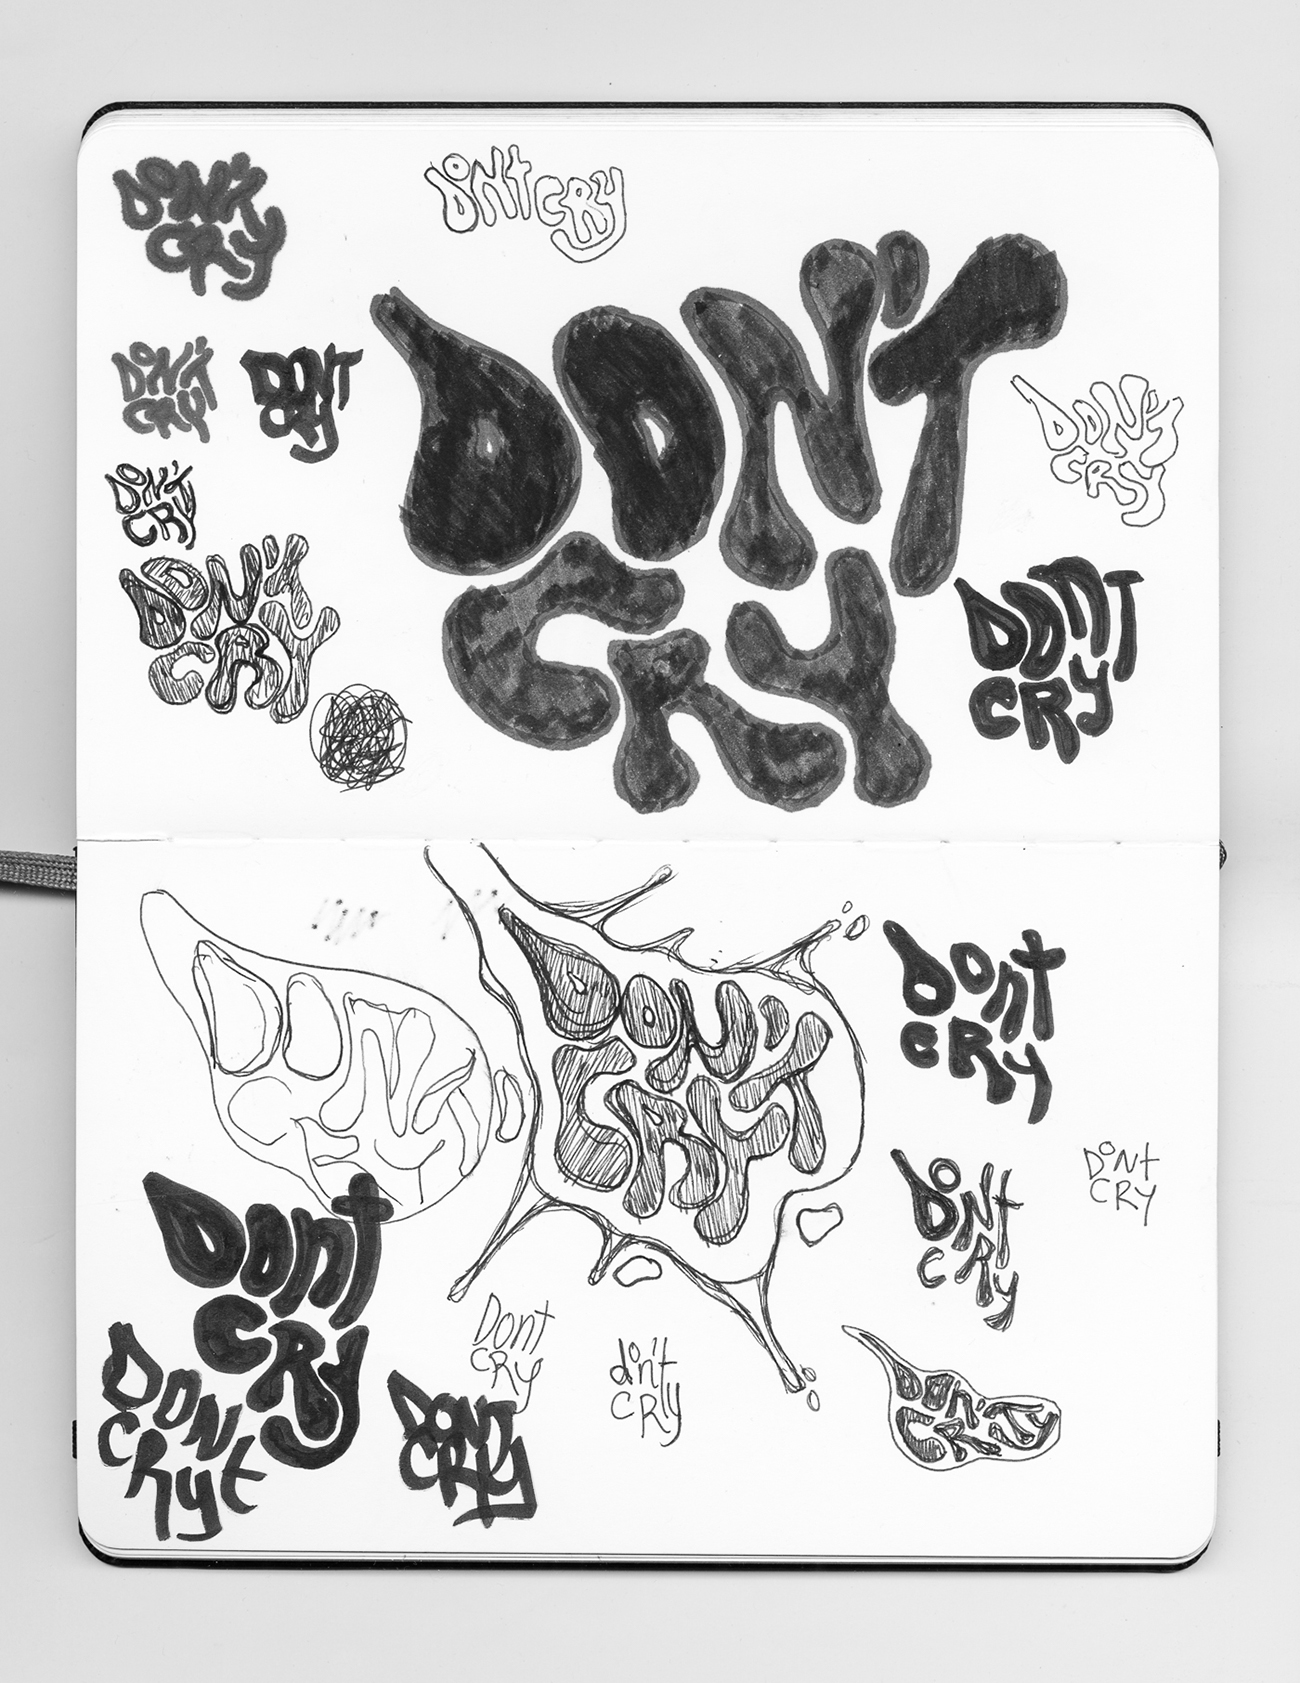 DON'T
CRY
DON'T CRY
DON'T
CRY
DON'T
CRY
DONT
CRY
DON'T
CRY
DON'T
CRY
DON'T
CRY
DONT
CRY
DON'T
CRY
DON'T
CRY
Dont
CRy
Dont
CRy
DON'T
CRY
DONT
CRY
Dont
CRy
don't
CRy
DON
CRyt
DONT
CRY
DON'T
CRY